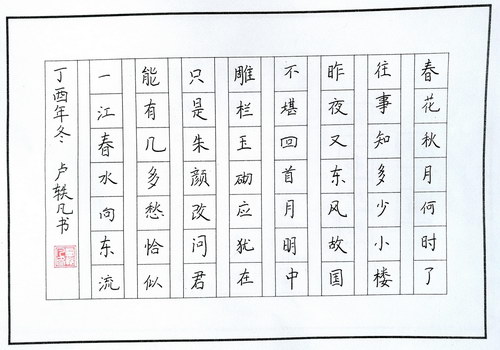 春花秋月何时了
往事知多少小楼
昨夜又东风故国
不堪回首月明中
雕栏玉砌应犹在
只是朱颜改问君
能有几多愁恰似
一江春水向东流
丁酉年冬 卢轶凡书